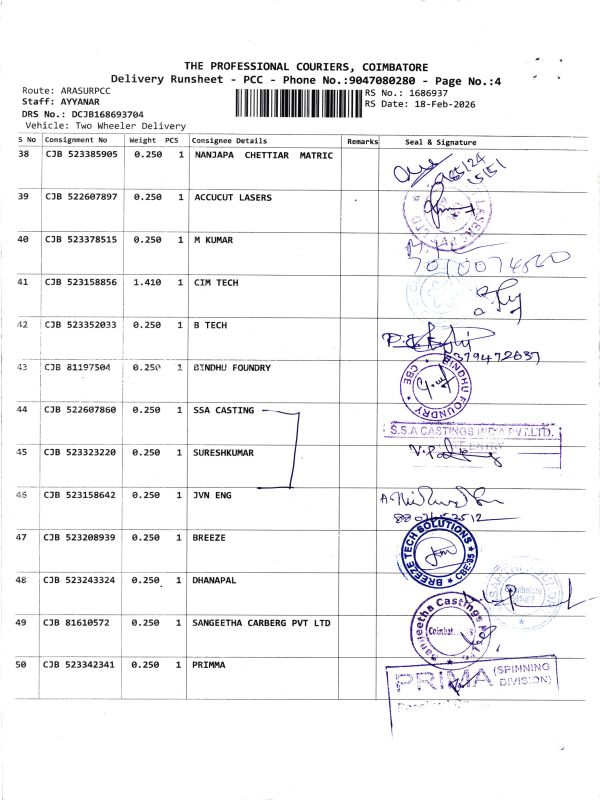 THE PROFESSIONAL COURIERS, COIMBATORE
Delivery Runsheet - PCC - Phone No.:9047080280 - Page No.:4
Route: ARASURPCC
RS No.: 1686937
Staff: AYYANAR
RS Date: 18-Feb-2026
DRS No.: DCJB168693704
Vehicle: Two Wheeler Delivery
S No Consignment No Weight PCS Consignee Details Remarks Seal & Signature
38 CJB 523385905 0.250 1 NANJAPA CHETTIAR MATRIC
39 CJB 522607897 0.250 1 ACCUCUT LASERS
40 CJB 523378515 0.250 1 M KUMAR
41 CJB 523158856 1.410 1 CIM TECH
42 CJB 523352033 0.250 1 B TECH
43 CJB 81197504 0.250 1 BINDHU FOUNDRY
BINDHU FOUNDRY CBE
44 CJB 522607860 0.250 1 SSA CASTING
S.S.A CASTINGS INDIA PVT.LTD.
45 CJB 523323220 0.250 1 SURESHKUMAR
46 CJB 523158642 0.250 1 JVN ENG
47 CJB 523208939 0.250 1 BREEZE
BREEZE TECH SOLUTIONS CBE-85
48 CJB 523243324 0.250 1 DHANAPAL
49 CJB 81610572 0.250 1 SANGEETHA CARBERG PVT LTD
Sangeetha Castings
50 CJB 523342341 0.250 1 PRIMMA
PRIMA (SPINNING DIVISION)